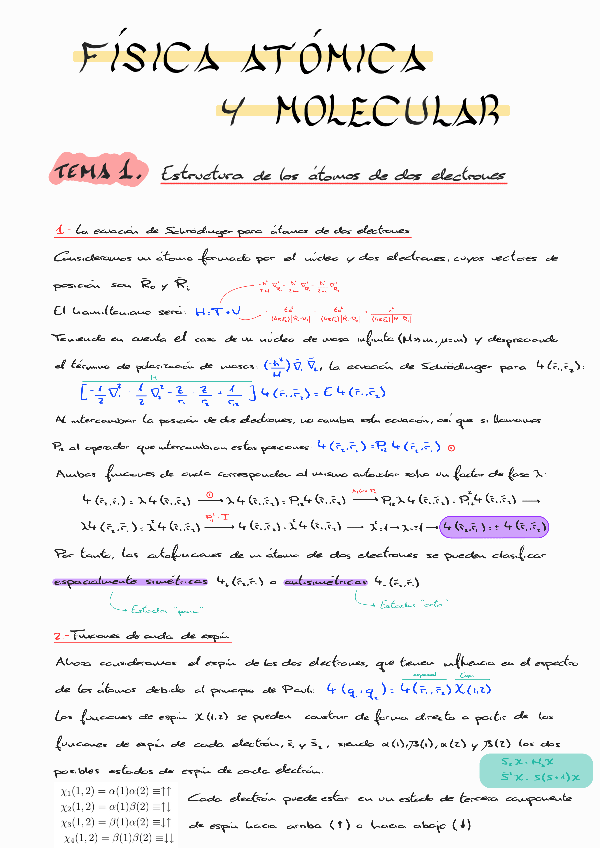 FÍSICA ATÓMICA
Y MOLECULAR
TEMA 1. Estructura de los átomos de dos electrones
1- La ecuación de Schrödinger para átomos de dos electrones
Consideramos un átomo formado por el núcleo y dos electrones, cuyos vectores de
posición son R̄₀ y R̄ᵢ
El hamiltoniano será: H = T + V
Teniendo en cuenta el caso de un núcleo de masa infinita (M>>m, μ=m) y despreciando
el término de polarización de masas (-ħ²/M) ∇̄₁ ∇̄₂, la ecuación de Schrödinger para ψ(r̄₁,r̄₂):
H
[-1/2 ∇₁² - 1/2 ∇₂² - Z/r₁ - Z/r₂ + 1/r₁₂] ψ(r̄₁,r̄₂) = E ψ(r̄₁,r̄₂)
Al intercambiar la posición de dos electrones, no cambia esta ecuación, así que si llamamos
P₁₂ al operador que intercambia estas posiciones ψ(r̄₂,r̄₁) = P₁₂ ψ(r̄₁,r̄₂) ①
Ambas funciones de onda corresponden al mismo autovalor salvo un factor de fase λ:
ψ(r̄₂,r̄₁) = λψ(r̄₁,r̄₂) ①→ λψ(r̄₁,r̄₂) = P₁₂ψ(r̄₁,r̄₂) → P₁₂λψ(r̄₁,r̄₂) = P₁₂²ψ(r̄₁,r̄₂) →
λψ(r̄₂,r̄₁) = λ²ψ(r̄₁,r̄₂) P₁₂² = I → ψ(r̄₁,r̄₂) = λ²ψ(r̄₁,r̄₂) → λ²=1 → λ=±1 → ψ(r̄₂,r̄₁) = ± ψ(r̄₁,r̄₂)
Por tanto, las autofunciones de un átomo de dos electrones se pueden clasificar
espacialmente simétricas ψ₊(r̄₁,r̄₂) o antisimétricas ψ₋(r̄₁,r̄₂)
→ Estados "para" → Estados "orto"
2- Funciones de onda de espín
Ahora consideramos el espín de los dos electrones, que tienen influencia en el espectro
espacial Espín
de los átomos debido al principio de Pauli: ψ(q₁,q₂) = ψ(r̄₁,r̄₂) χ(1,2)
Las funciones de espín χ(1,2) se pueden construir de forma directa a partir de las
funciones de espín de cada electrón, s̄₁ y s̄₂, siendo α(1), β(1), α(2) y β(2) los dos
posibles estados de espín de cada electrón.
S_z χ = M_s χ
S̄² χ = S(S+1)χ
χ₁(1,2) = α(1)α(2) ≡↑↑
χ₂(1,2) = α(1)β(2) ≡↑↓
χ₃(1,2) = β(1)α(2) ≡↓↑
χ₄(1,2) = β(1)β(2) ≡↓↓
Cada electrón puede estar en un estado de tercera componente
de espín hacia arriba (↑) o hacia abajo (↓)